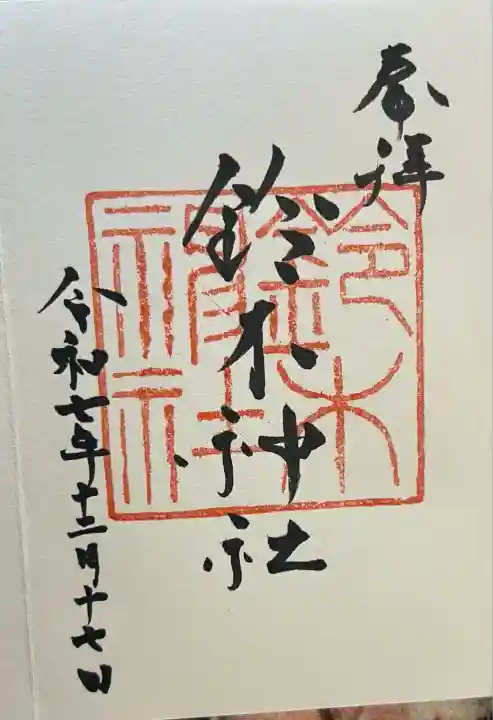 奉拝
鈴木神社
令和七年十二月十七日